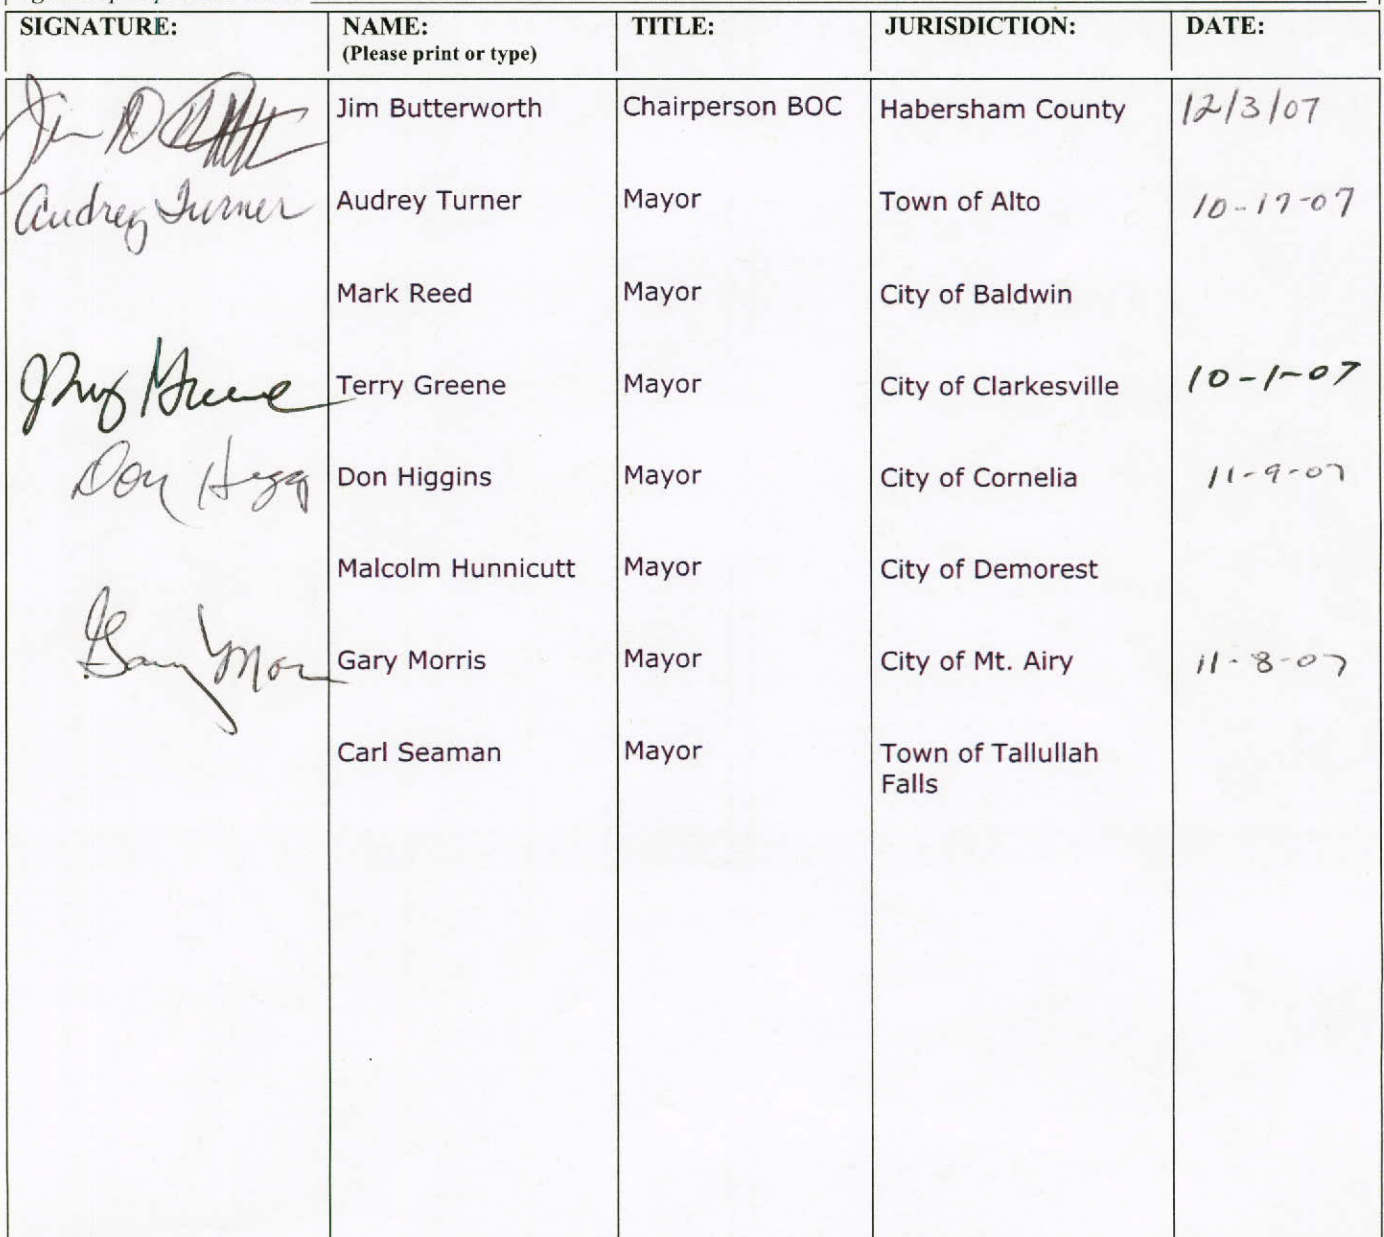 SIGNATURE: NAME: TITLE: JURISDICTION: DATE:
(Please print or type)
Jim Butterworth Chairperson BOC Habersham County 12/3/07
Audrey Turner Audrey Turner Mayor Town of Alto 10-17-07
Mark Reed Mayor City of Baldwin
Terry Greene Mayor City of Clarkesville 10-1-07
Don Higg Don Higgins Mayor City of Cornelia 11-9-07
Malcolm Hunnicutt Mayor City of Demorest
Gary Mor Gary Morris Mayor City of Mt. Airy 11-8-07
Carl Seaman Mayor Town of Tallullah
Falls